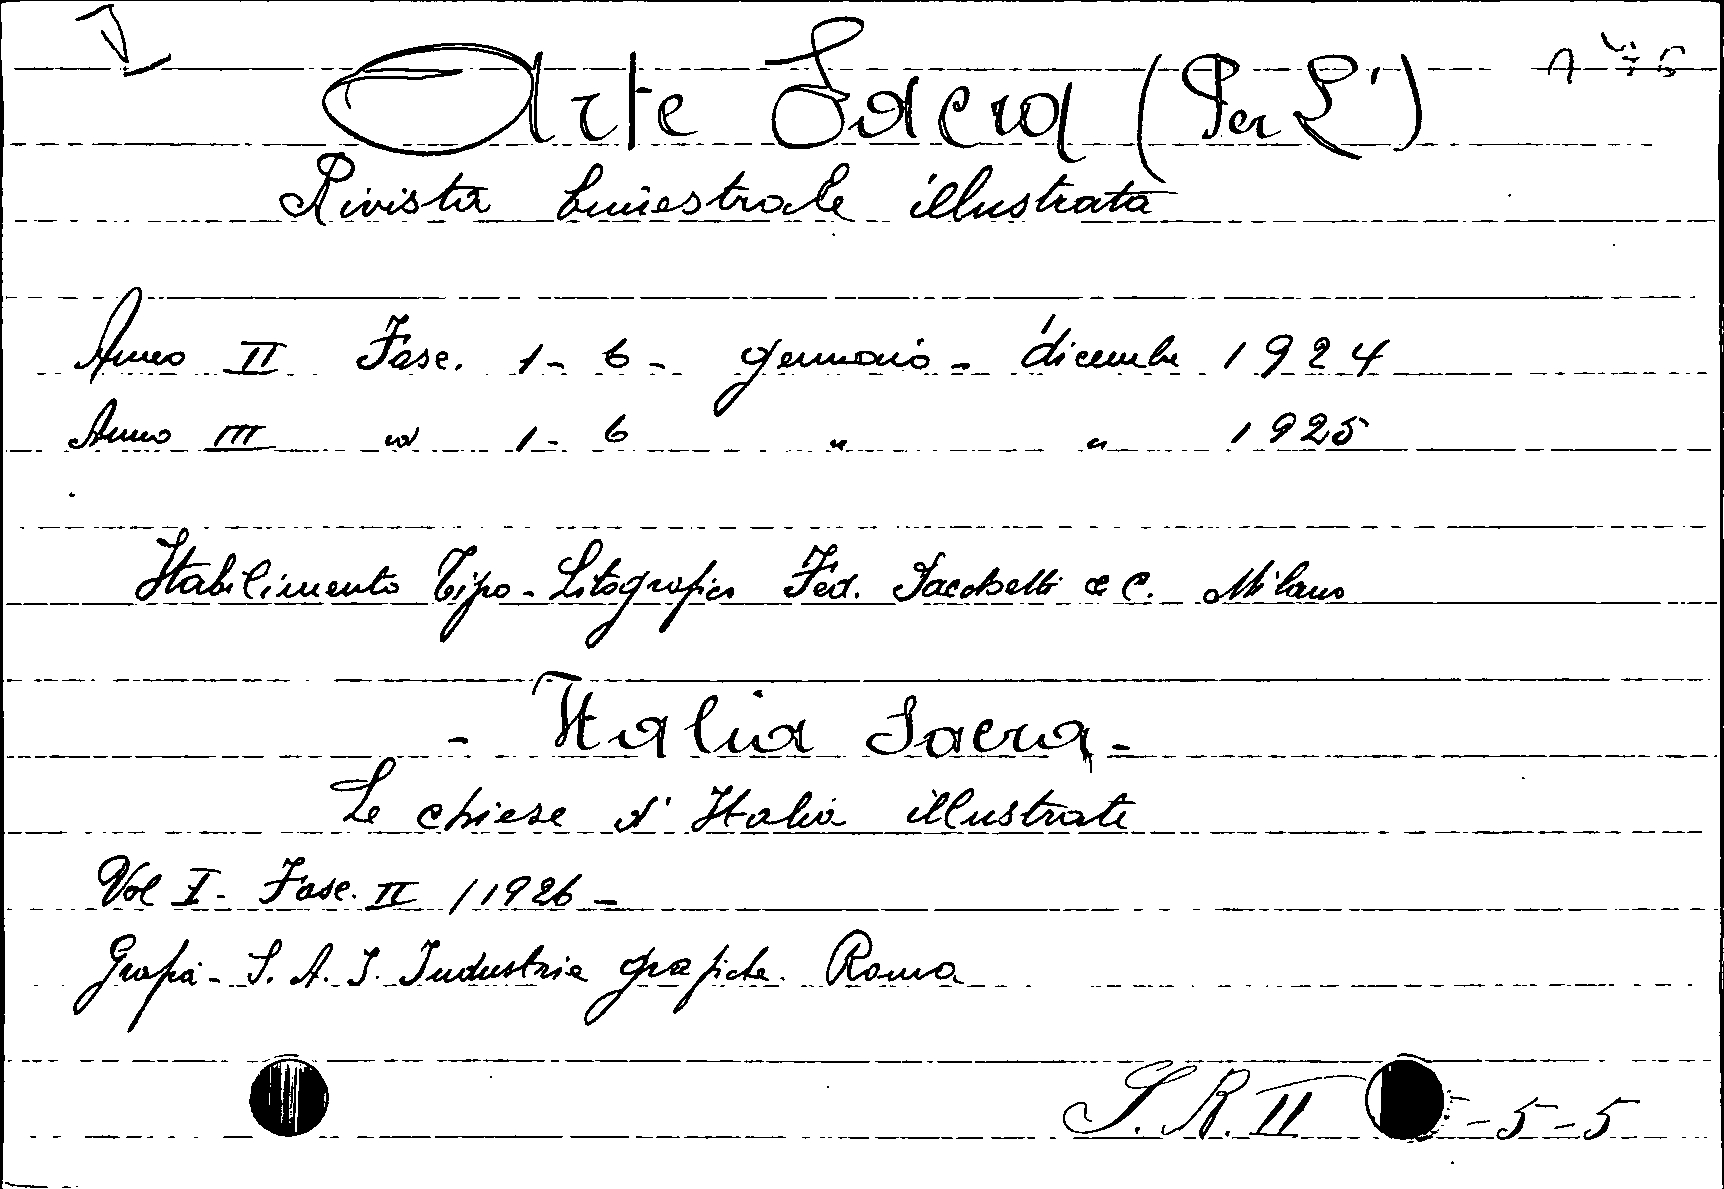 Arte Sacra (Per L')
Rivista bimestrale illustrata
Anno II Fasc. 1-6- gennaio - dicembre 1924
Anno III " 1-6 " " 1925
Stabilimento Tipo-Litografico Fed. Sacchetti & C. Milano
- Italia Sacra -
Le chiese d'Italia illustrate
Vol I- Fasc. II / 1926 -
Grafia- S. A. I. Industrie grafiche. Roma
S. R. II -5-5